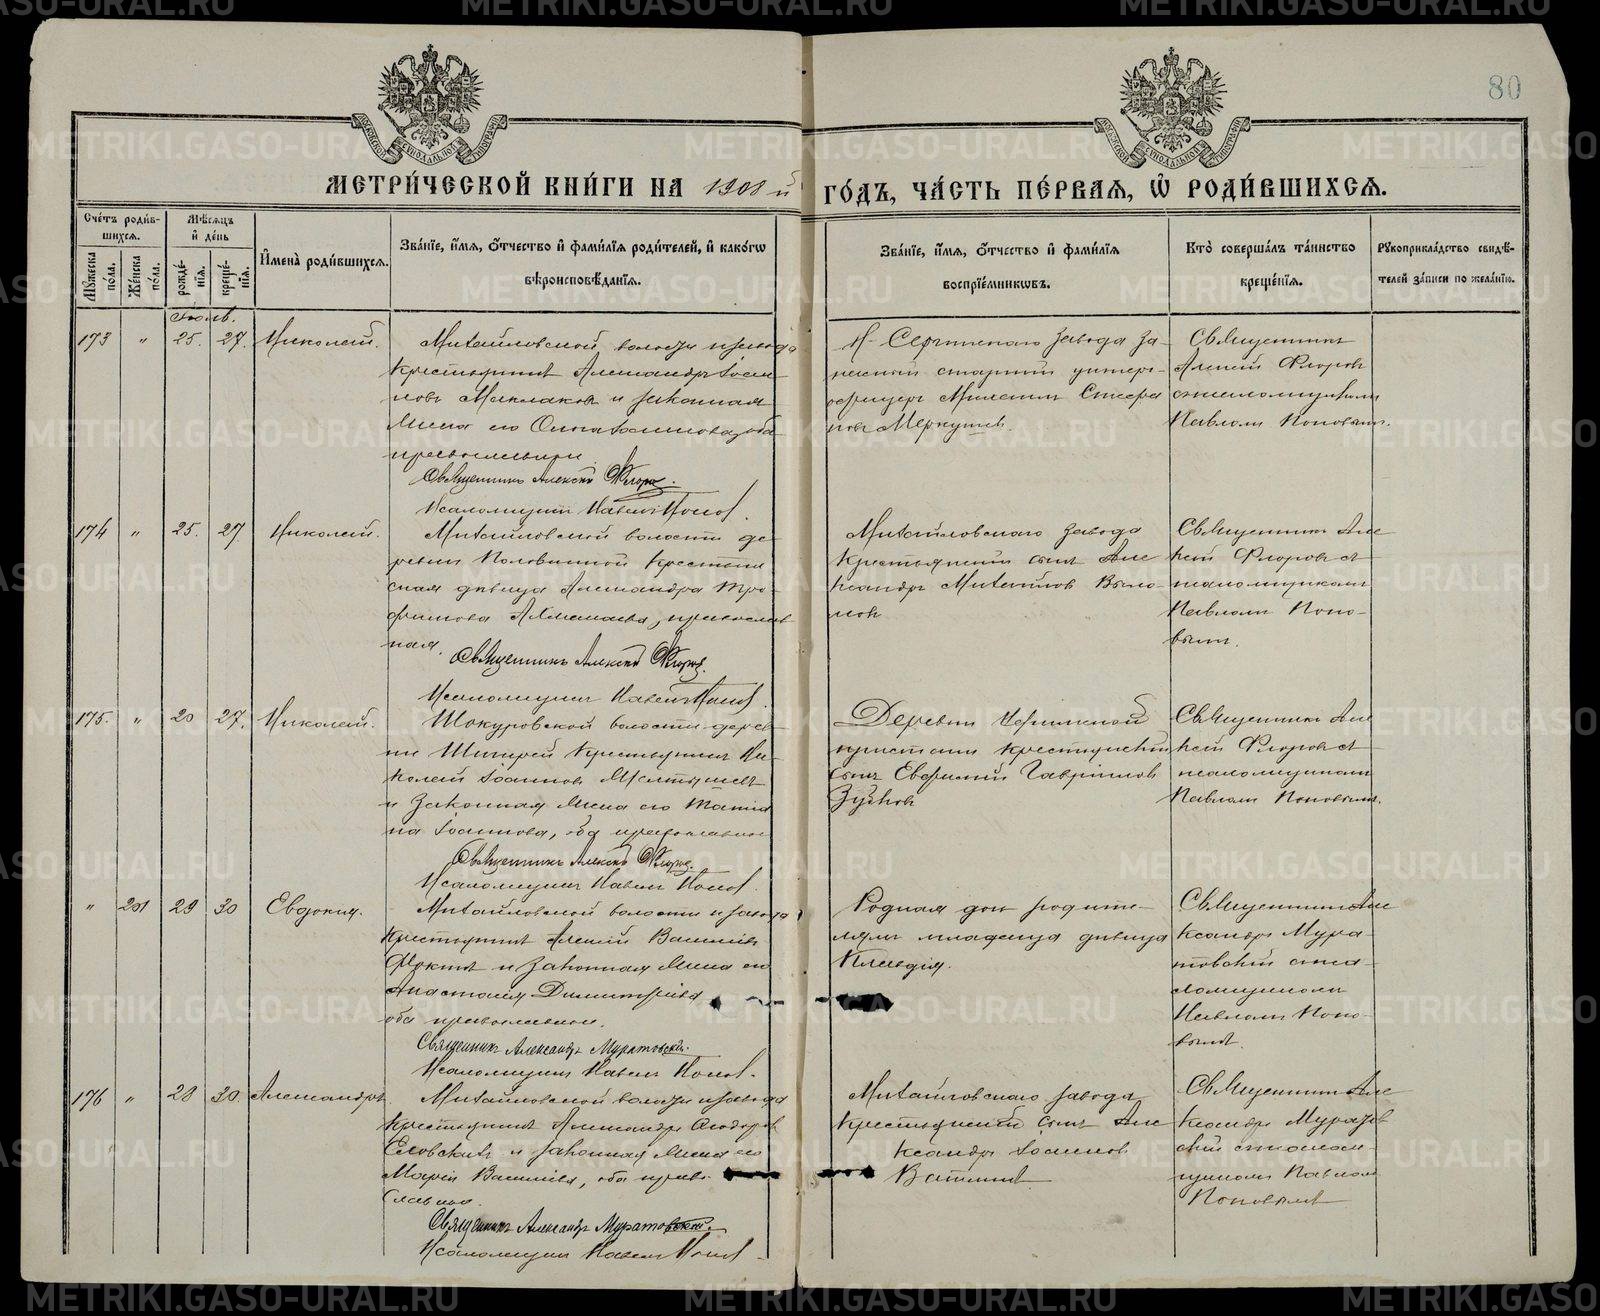 METRIKI.GASO-URAL.RU
80
МЕТРИ́ЧЕСКОЙ КНИ́ГИ НА 1908 й ГО́ДЪ, ЧА́СТЬ ПЕ́РВАЯ, Ѡ РОДИ́ВШИХСЯ.
Сче́тъ роди́вшихся.
Му́жеска по́ла.
Же́нска по́ла.
Мѣ́сяцъ и де́нь
рожде́нія.
креще́нія.
Имена̀ роди́вшихся.
Зва́ніе, и́мя, о́тчество и фами́лія роди́телей, и како́гѡ
вѣроисповѣ́данія.
Зва́ніе, и́мя, о́тчество и фами́лія
воспріе́мниковъ.
Кто̀ соверша́лъ та́инство
креще́нія.
Рукоприкла́дство свидѣ́-
телей за́писи по жела́нію.
Іюль.
173 " 25. 27. Николай.
Михайловской волости и завода
крестьянинъ Александръ Іоси-
повъ Маклаковъ и законная
жена его
православные
Священникъ Алексій Флоровъ.
Псаломщикъ Павелъ Поповъ.
Н-Сергинскаго завода за-
пасный старший унтеръ-
офицеръ
Священникъ
Алексій Флоровъ
съ псаломщикомъ
Павломъ Поповымъ.
174 " 25. 27 Николай.
Михайловской волости де-
ревни Половинной крестьян-
ская дѣвица Александра Тро-
фимова православ-
ная.
Священникъ Алексій Флоровъ.
Псаломщикъ Павелъ Поповъ.
Михайловскаго завода
крестьянскій сынъ Але-
ксандръ Михаиловъ
Священникъ Але-
ксій Флоровъ съ
псаломщикомъ
Павломъ Попо-
вымъ.
175. " 20 27. Николай.
Шокуровской волости дерев-
ни Шигирей крестьянинъ Ни-
колай Іоанновъ
и законная жена его Татья-
на Іоаннова, оба православные
Священникъ Алексій Флоровъ.
Псаломщикъ Павелъ Поповъ.
Деревни Уфимской
пристани крестьянскій
сынъ Евфимій Гавріиловъ
Зуйковъ
Священникъ Але-
ксій Флоровъ съ
псаломщикомъ
Павломъ Поповымъ.
" 201 29 30 Евдокия.
Михайловской волости и завода
крестьянинъ Алексій Васильевъ
и законная жена его
Анастасия Димитріева
оба православные.
Священникъ Александръ Муратовскій.
Псаломщикъ Павелъ Поповъ.
Родная дочь родите-
лямъ младенца дѣвица
Клавдія.
Священникъ Але-
ксандръ Мура-
товскій съ пса-
ломщикомъ
Павломъ Попо-
вымъ.
176 " 28 30. Александръ.
Михайловской волости и завода
крестьянинъ Александръ Ѳеодоровъ
Еловскихъ и законная жена его
Марія Васильева, оба право-
славные.
Священникъ Александръ Муратовскій.
Псаломщикъ Павелъ Поповъ.
Михайловскаго завода
крестьянскій сынъ Але-
ксандръ Іоанновъ
Священникъ Але-
ксандръ Муратов-
скій съ псалом-
щикомъ Павломъ
Поповымъ